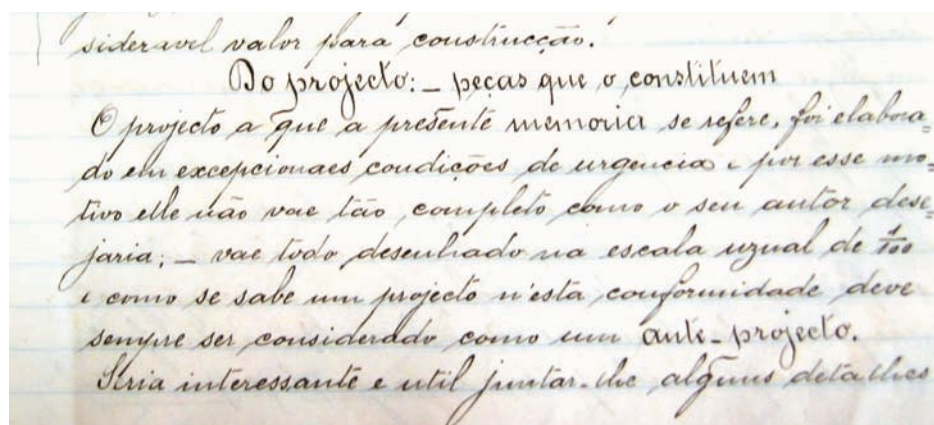 sideravel valor para construcção.
Do projecto: _ peças que o constituem
O projecto a que a presente memoria se refere, foi elabora=
do em excepcionaes condições de urgencia e por esse mo=
tivo elle não vae tão completo como o seu autor dese=
jaria; _ vae todo desenhado na escala uzual de 1/100
e como se sabe um projecto n'esta conformidade deve
sempre ser considerado como um ante-projecto.
Seria interessante e util juntar-lhe alguns detalhes